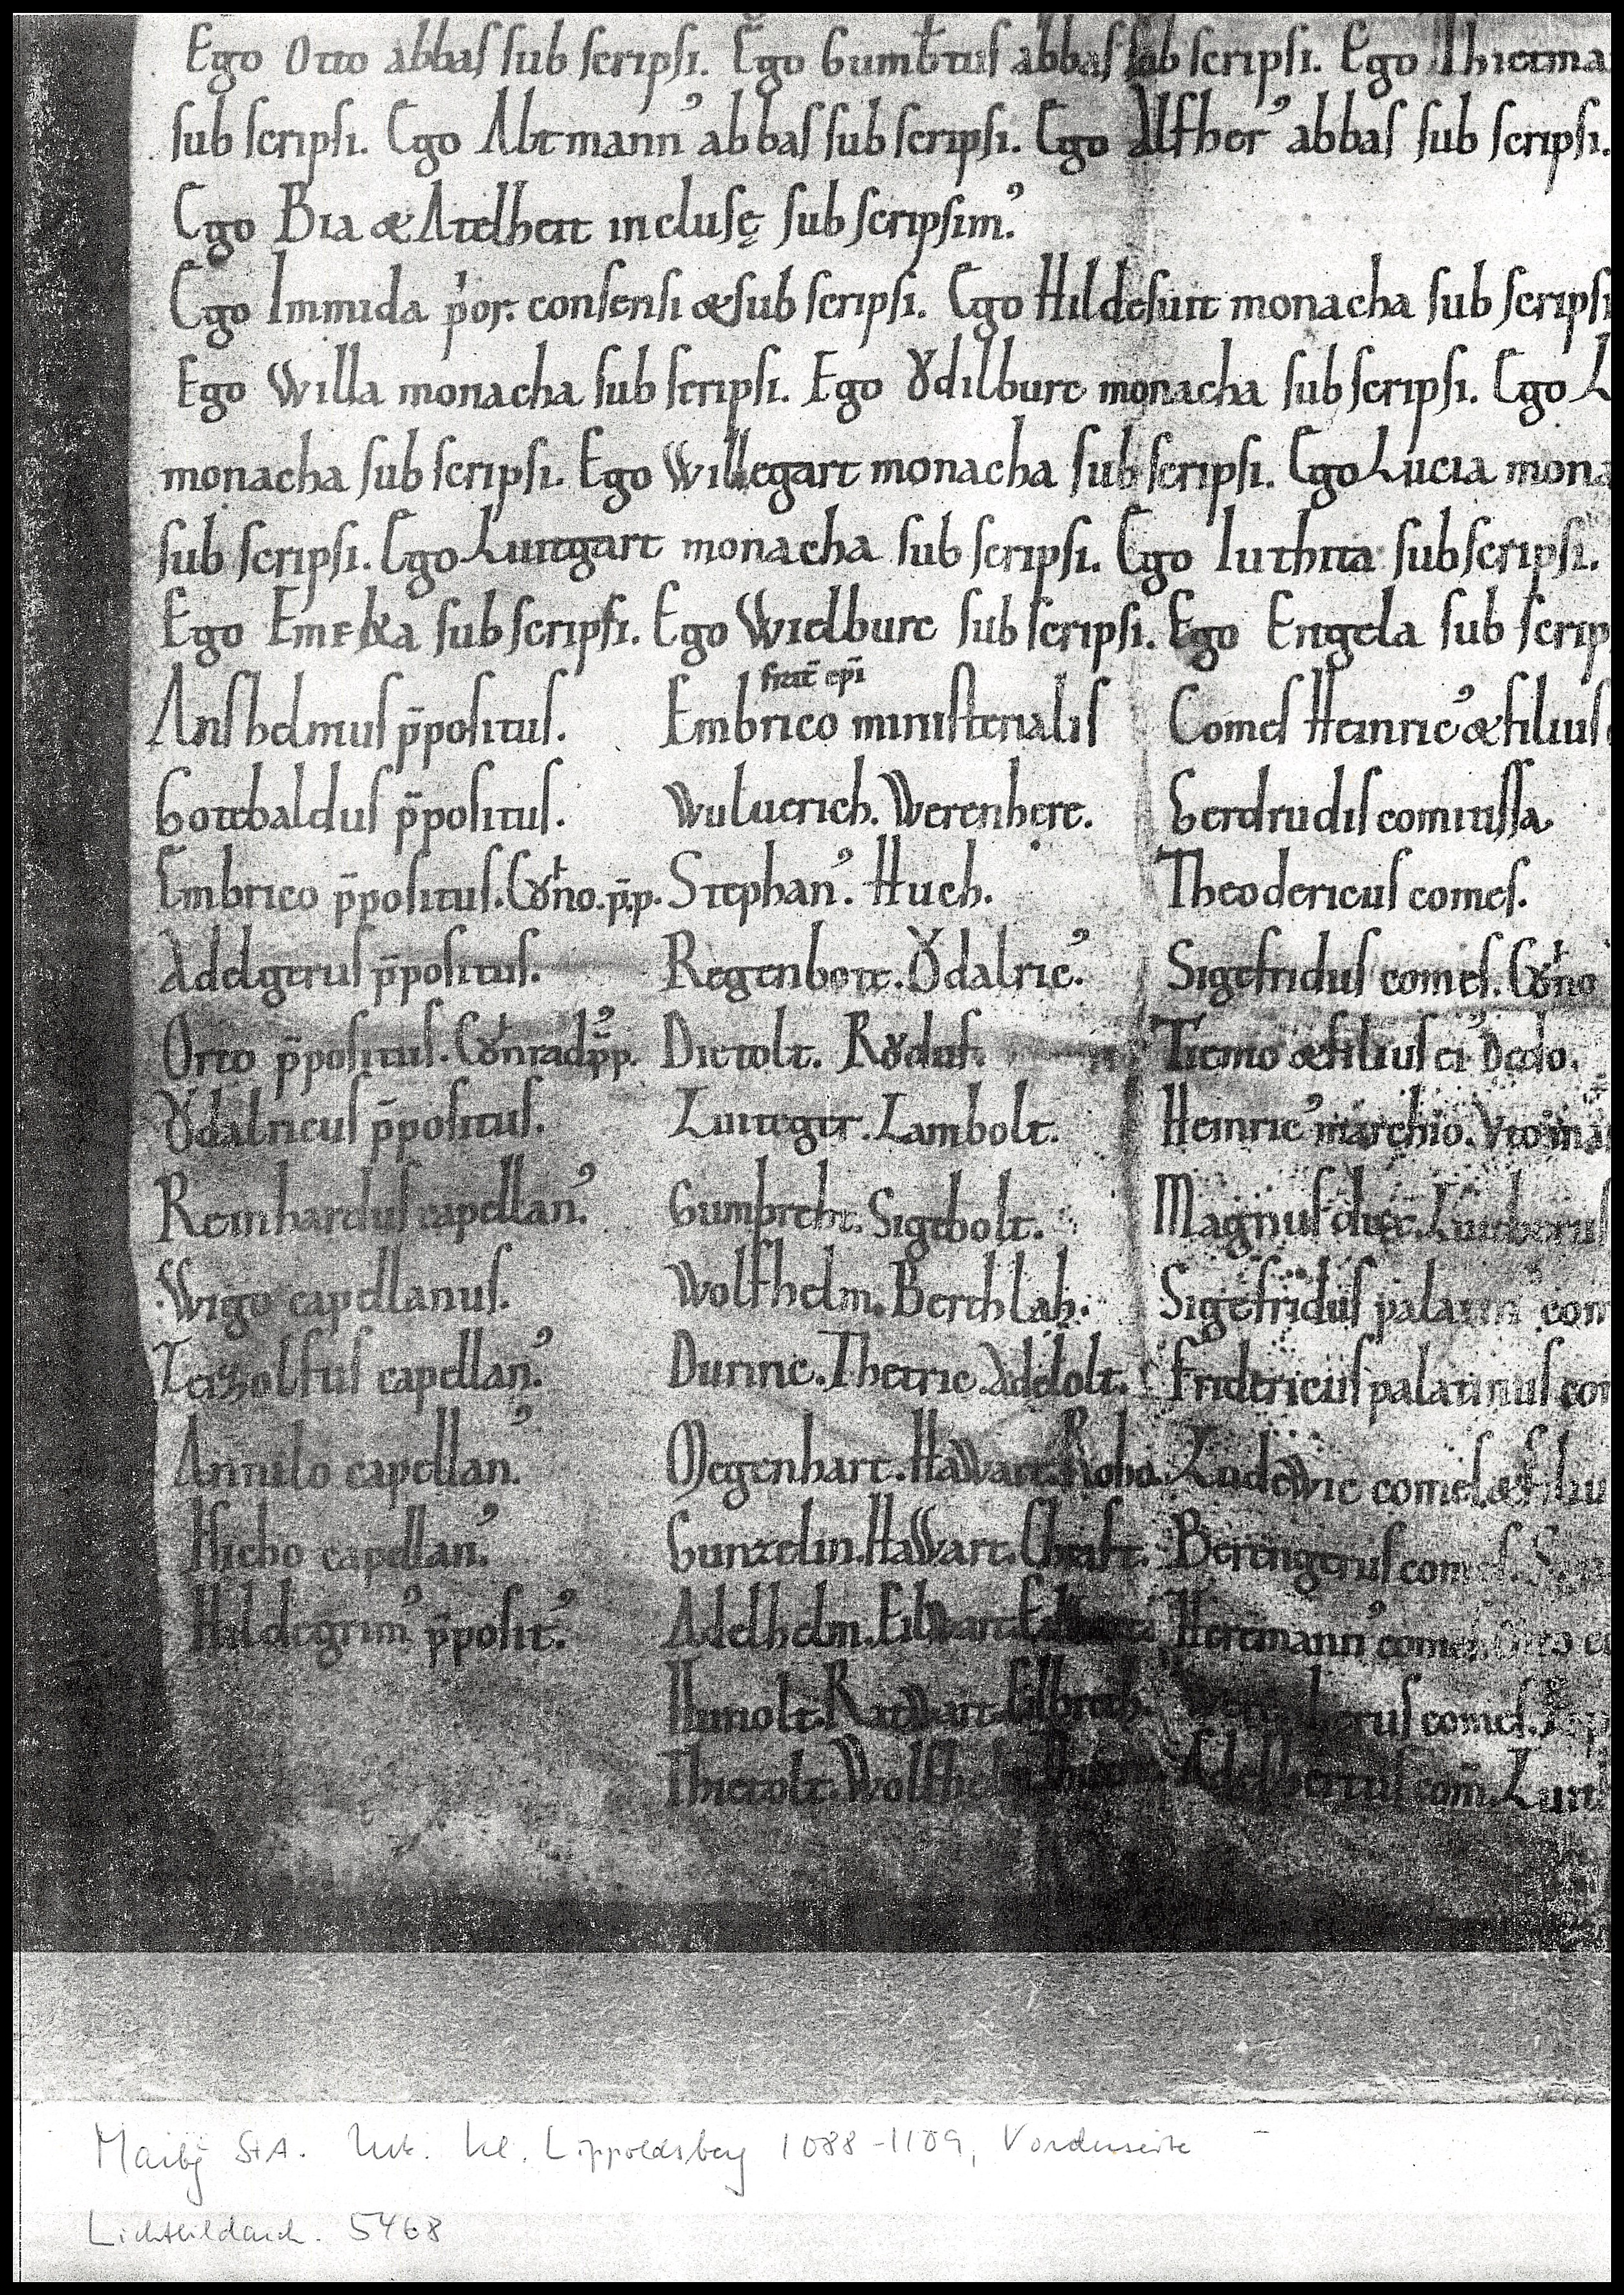 Ego Otto abbas sub scripsi. Ego Gumbt̄us abbas sub scripsi. Ego Thietma
sub scripsi. Ego Abtmann᾽ abbas sub scripsi. Ego Alfher᾽ abbas sub scripsi.
Ego Bia & Atelheit inclusę sub scripsim᾽.
Ego Immida p̓or. consensi & sub scripsi. Ego Hildesuit monacha sub scripsi
Ego Willa monacha sub scripsi. Ego Ȣdilburc monacha sub scripsi. Ego L
monacha sub scripsi. Ego Willegart monacha sub scripsi. Ego Lucia mona
sub scripsi. Ego Luitgart monacha sub scripsi. Ego Iuthita sub scripsi.
Ego sub scripsi. Ego Wielburc sub scripsi. Ego Engela sub scrip
frat̄ ep̄i
Anshelmus p̄positus. Embrico ministerialis Comes Heinric᾽ & filius
Gottbaldus p̄positus. Wuluerich. Werenhere. Gerdrudis comitissa
Embrico p̄positus. Cȣno. p̄.p. Stephan᾽. Huch. Theodericus comes.
Adelgerus p̄positus. Regenbott. Ȣdalric᾽. Sigefridus comes. Cȣno
Otto p̄positus. Cȣnrad᾽ p̄p. Dietolt. Rȣdulf. Tiemo & filius ei᾽ Dedo.
Ȣdalricus p̄positus. Luiteger. Lambolt. Heinric᾽ marchio. Vto ma
Reinhardus capellan᾽. Gumbreht. Sigebolt. Magnus dux. Liuderus
Wigo capellanus. Wolfhelm. Berthlah. Sigefridus palatin᾽ com
Teizolfus capellan᾽. Durinc. Thetric. Adelolt. Fridericus palatinus com
Annilo capellan᾽. Megenhart. Hawart. Hoho. Ludewic comes & filiu
Hicho capellan᾽. Gunzelin. Hawart. Christ. Berengerus comes.
Hildegrim᾽ p̄posit᾽. Adelhelm. Eilwart. Heremann᾽ comes.
Hunolt. Ratwart. Eilbrech. comes.
Thietolt. Wolfhel Adelbertus com̄. Luit
Marbg StA. Urk. Kl. Lippoldsberg 1088-1109, Vorderseite
Lichtbildarch. 5468